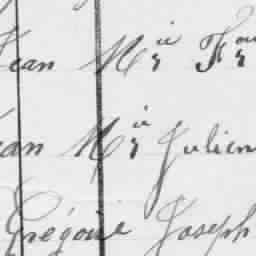 Jean Mie Fr
ean Mie Julien
Grégoire Joseph